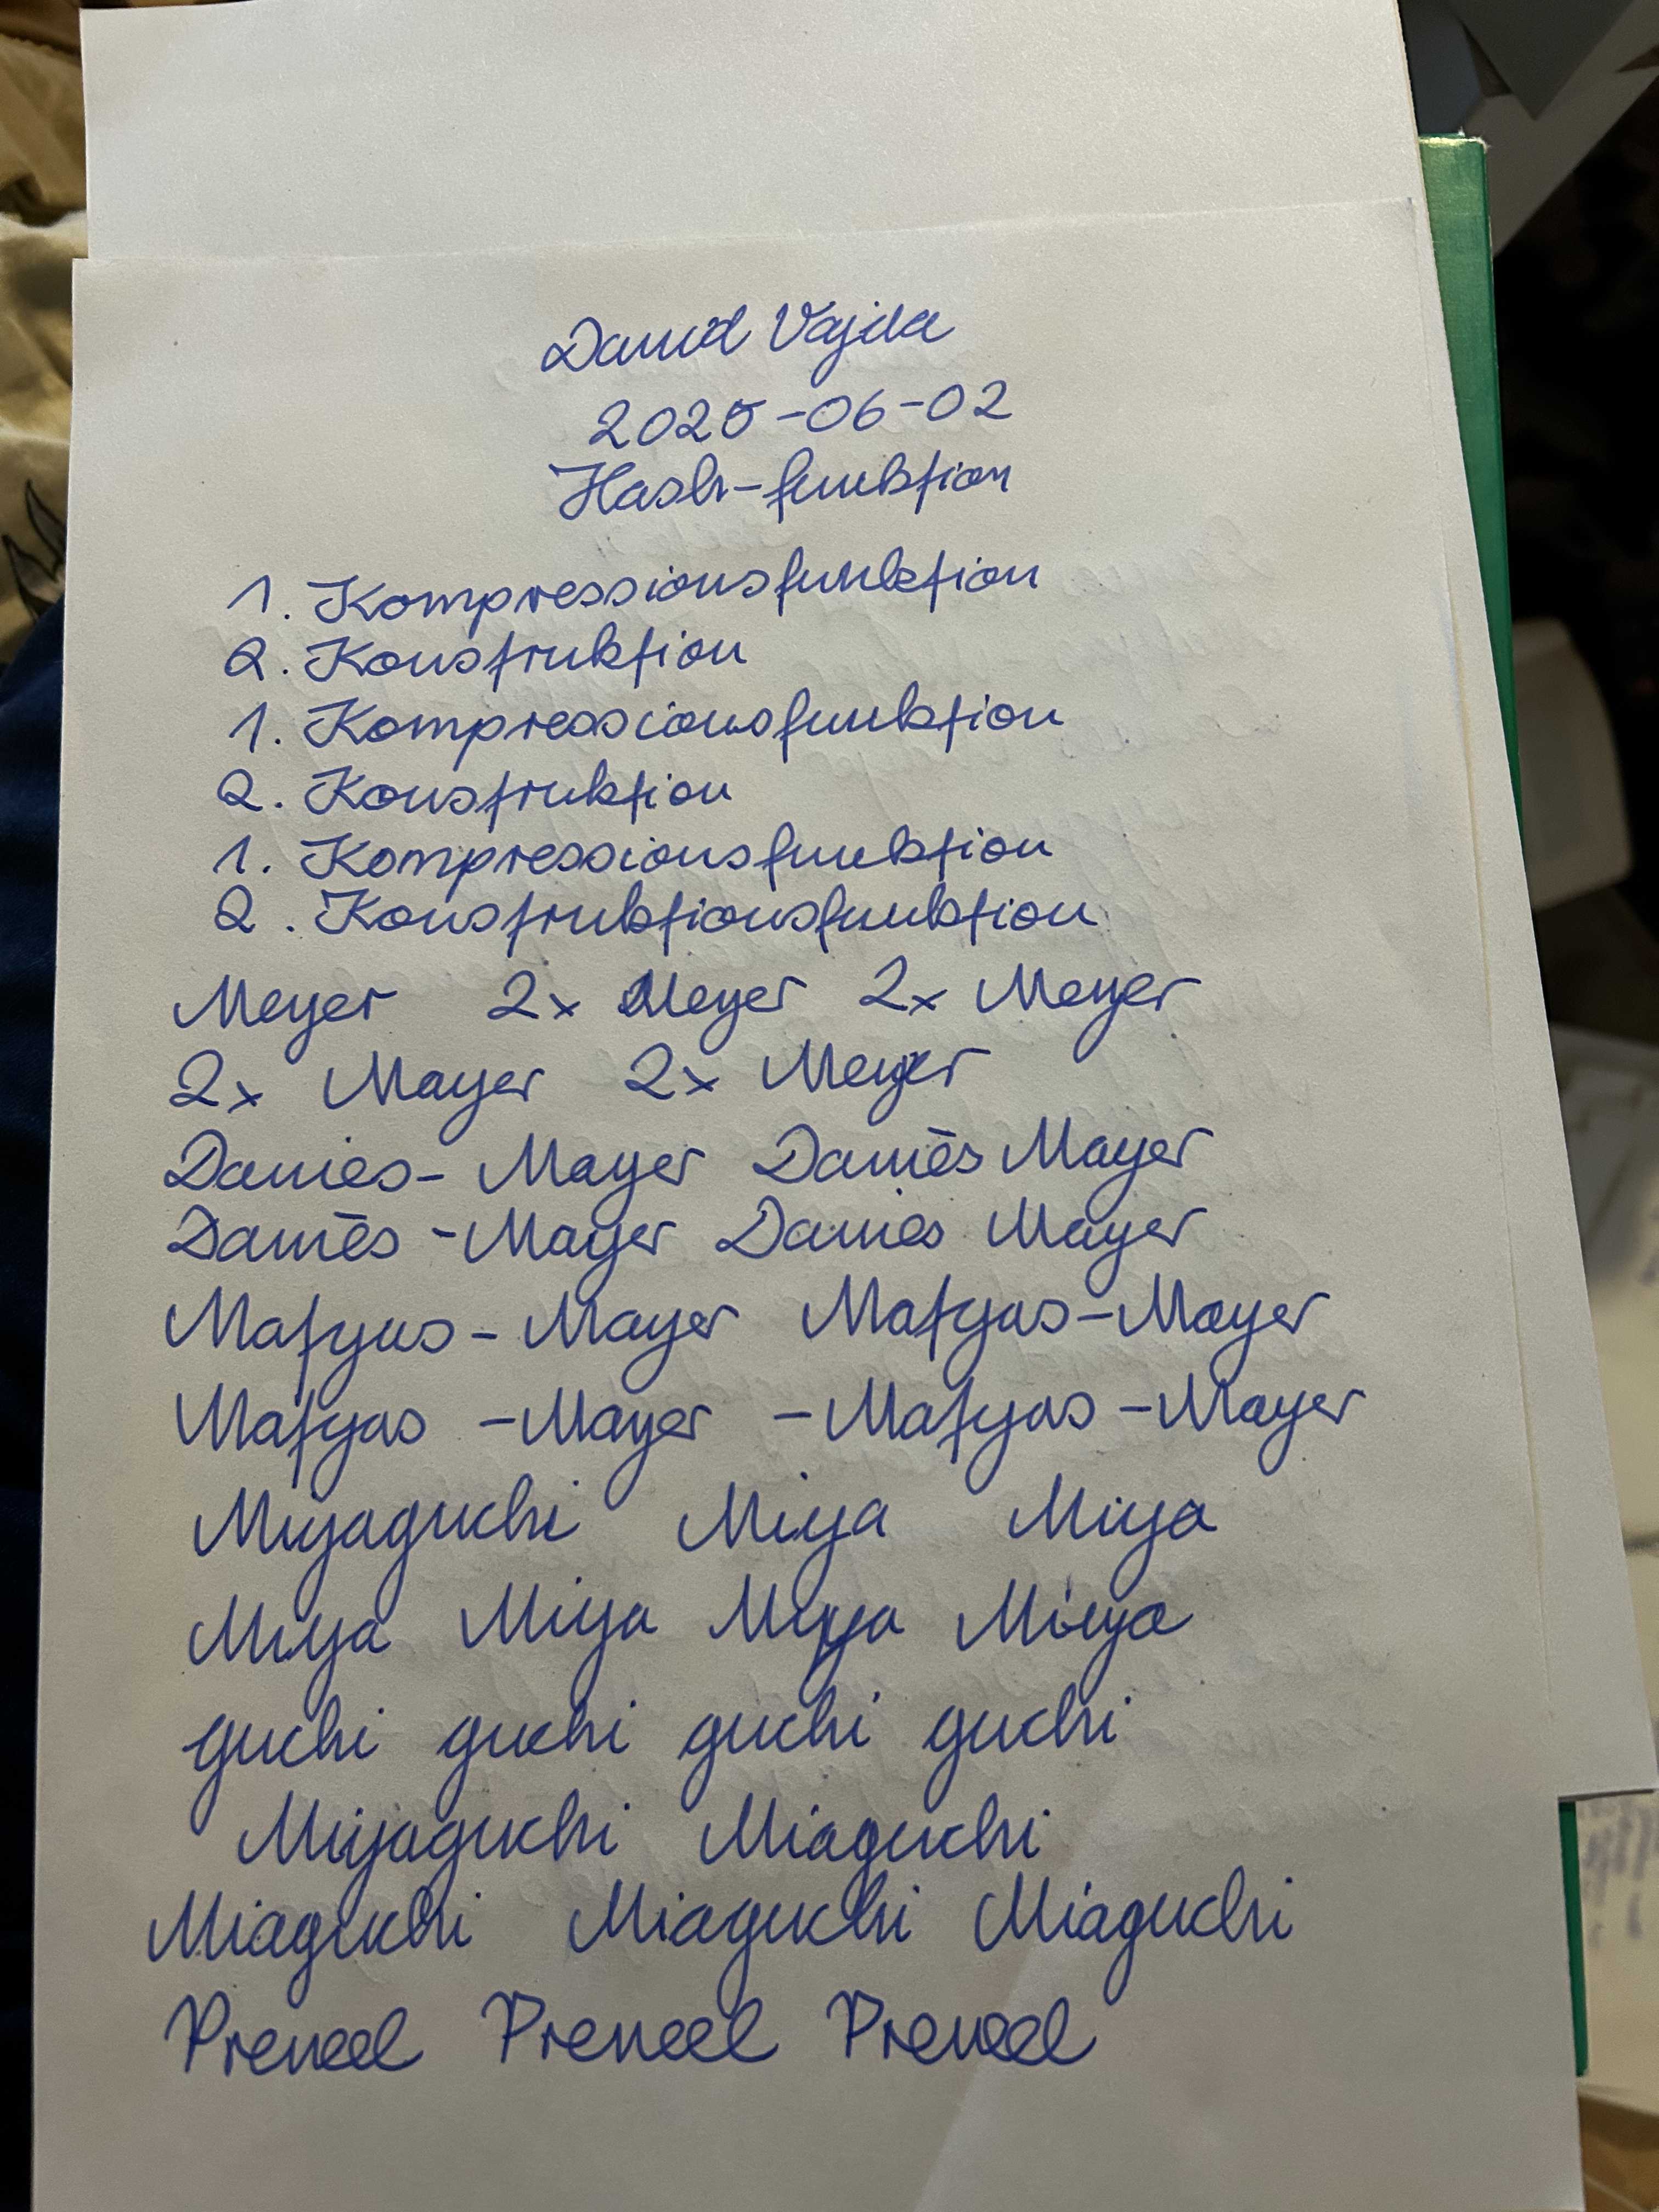 David Vajda
2025-06-02
Hash-funktion
1. Kompressionsfunktion
2. Konstruktion
1. Kompressionsfunktion
2. Konstruktion
1. Kompressionsfunktion
2. Konstruktionsfunktion
Meyer 2x Meyer 2x Meyer
2x Mayer 2x Meyer
Davies- Mayer Daviēs Mayer
Daviēs -Mayer Davies Mayer
Matyas- Mayer Matyas-Mayer
Matyas -Mayer -Matyas -Mayer
Miyaguchi Miya Miya
Miya Miya Miya Miya
guchi guchi guchi guchi
Miyaguchi Miaguchi
Miaguchi Miaguchi Miaguchi
Preneel Preneel Preneel